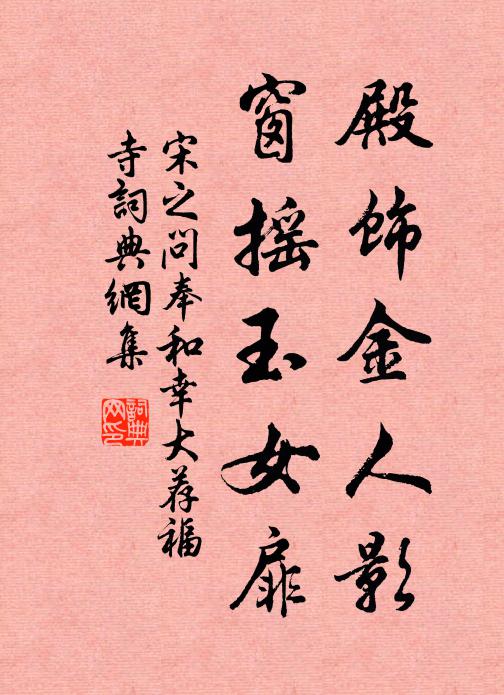 殿饰金人影
窗摇玉女扉
宋之问奉和幸大荐福
寺词典網集
詞典網印